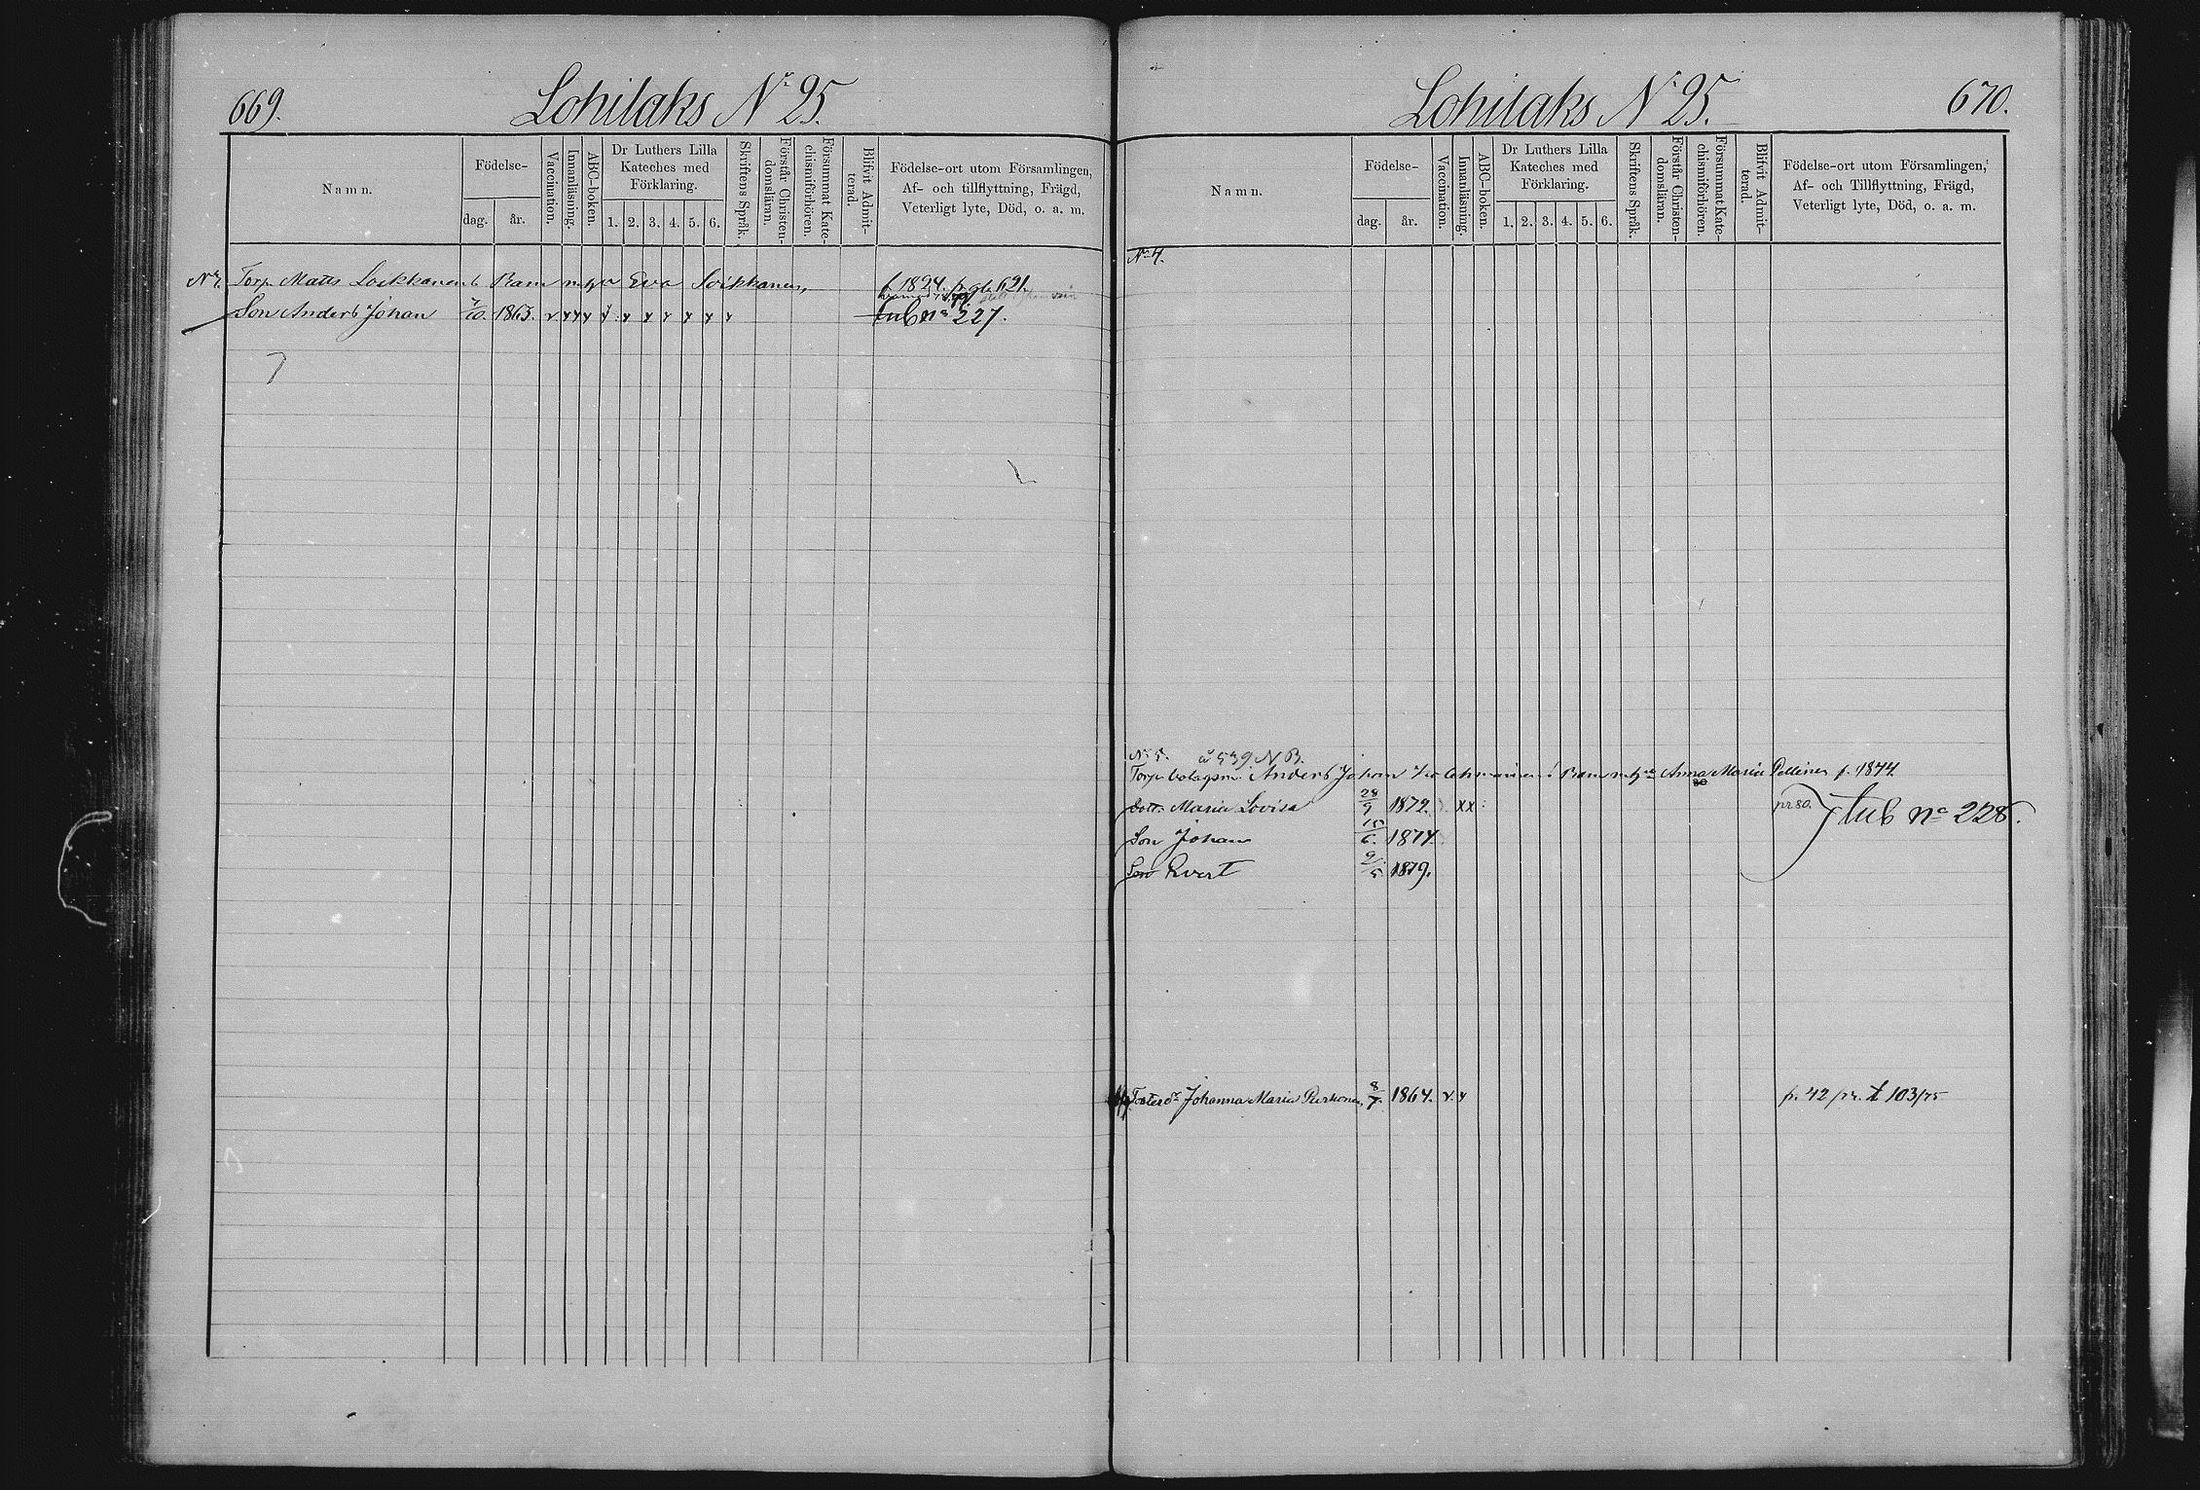 669. Lohilaks Nr 25.
Namn.
Födelse-
dag. år.
Vaccination.
Innanläsning.
ABC-boken.
Dr Luthers Lilla
Kateches med
Förklaring.
1. 2. 3. 4. 5. 6.
Skriftens Språk.
Förstår Christen-
domsläran.
Försummat Kate-
chismiförhören.
Blifvit Admit-
terad.
Födelse-ort utom Församlingen,
Af- och tillflyttning, Frägd,
Veterligt lyte, Död, o. a. m.
Torp. Matts Loikkanens Barn m. h. Eva Loikkanen,
Son Anders Johan 7/10. 1863.
tub no 227.
Lohilaks Nr 25. 670.
Namn.
Födelse-
dag. år.
Vaccination.
Innanläsning.
ABC-boken.
Dr Luthers Lilla
Kateches med
Förklaring.
1. 2. 3. 4. 5. 6.
Skriftens Språk.
Förstår Christen-
domsläran.
Försummat Kate-
chismiförhören.
Blifvit Admit-
terad.
Födelse-ort utom Församlingen,
Af- och Tillflyttning, Frägd,
Veterligt lyte, Död, o. a. m.
No 4.
No 5. å 539 NB.
Torp. bolagsm. Anders Johan Barn m. h. Anna Maria Pellinen f. 1844
dott. Maria Lovisa 28/9 1872. xx pr 80. tub no 228.
Son Johan 15/6. 1877.
Son Evert 9/5 1879.
Johanna Maria 8/7. 1864. p. 42 pr. t 103/75